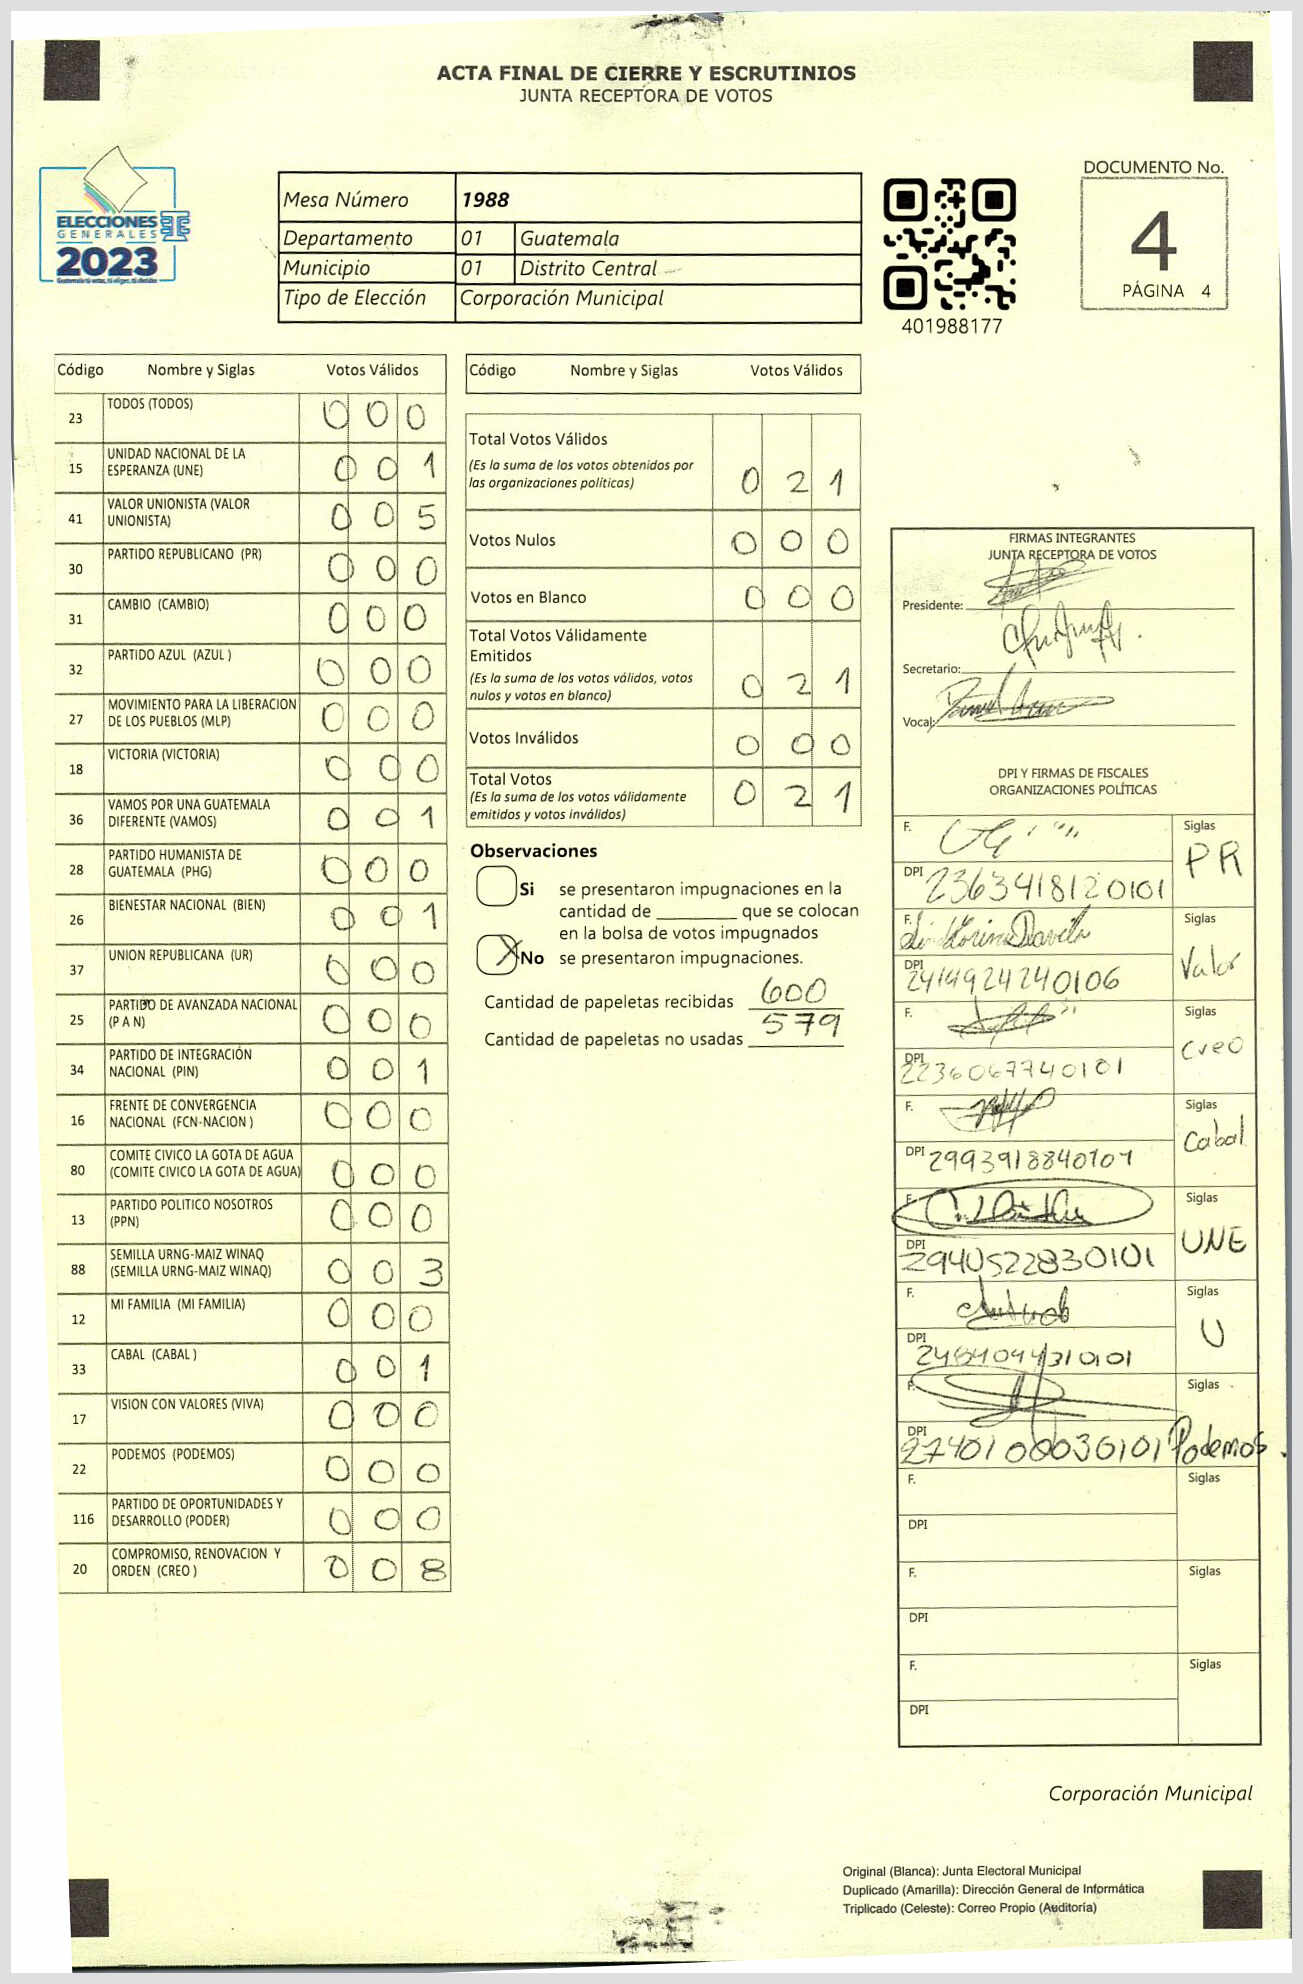 ACTA FINAL DE CIERRE Y ESCRUTINIOS
JUNTA RECEPTORA DE VOTOS
ELECCIONES
GENERALES
2023
Mesa Número 1988
Departamento 01 Guatemala
Municipio 01 Distrito Central
Tipo de Elección Corporación Municipal
401988177
DOCUMENTO No.
4
PÁGINA 4
Código Nombre y Siglas Votos Válidos
23 TODOS (TODOS) 0 0 0
15 UNIDAD NACIONAL DE LA ESPERANZA (UNE) 0 0 1
41 VALOR UNIONISTA (VALOR UNIONISTA) 0 0 5
30 PARTIDO REPUBLICANO (PR) 0 0 0
31 CAMBIO (CAMBIO) 0 0 0
32 PARTIDO AZUL (AZUL ) 0 0 0
27 MOVIMIENTO PARA LA LIBERACION DE LOS PUEBLOS (MLP) 0 0 0
18 VICTORIA (VICTORIA) 0 0 0
36 VAMOS POR UNA GUATEMALA DIFERENTE (VAMOS) 0 0 1
28 PARTIDO HUMANISTA DE GUATEMALA (PHG) 0 0 0
26 BIENESTAR NACIONAL (BIEN) 0 0 1
37 UNION REPUBLICANA (UR) 0 0 0
25 PARTIDO DE AVANZADA NACIONAL (P A N) 0 0 0
34 PARTIDO DE INTEGRACIÓN NACIONAL (PIN) 0 0 1
16 FRENTE DE CONVERGENCIA NACIONAL (FCN-NACION ) 0 0 0
80 COMITE CIVICO LA GOTA DE AGUA (COMITE CIVICO LA GOTA DE AGUA) 0 0 0
13 PARTIDO POLITICO NOSOTROS (PPN) 0 0 0
88 SEMILLA URNG-MAIZ WINAQ (SEMILLA URNG-MAIZ WINAQ) 0 0 3
12 MI FAMILIA (MI FAMILIA) 0 0 0
33 CABAL (CABAL ) 0 0 1
17 VISION CON VALORES (VIVA) 0 0 0
22 PODEMOS (PODEMOS) 0 0 0
116 PARTIDO DE OPORTUNIDADES Y DESARROLLO (PODER) 0 0 0
20 COMPROMISO, RENOVACION Y ORDEN (CREO ) 0 0 8
Código Nombre y Siglas Votos Válidos
Total Votos Válidos
(Es la suma de los votos obtenidos por
las organizaciones políticas) 0 2 1
Votos Nulos 0 0 0
Votos en Blanco 0 0 0
Total Votos Válidamente
Emitidos
(Es la suma de los votos válidos, votos
nulos y votos en blanco) 0 2 1
Votos Inválidos 0 0 0
Total Votos
(Es la suma de los votos válidamente
emitidos y votos inválidos) 0 2 1
Observaciones
Si se presentaron impugnaciones en la
cantidad de ________ que se colocan
en la bolsa de votos impugnados
X No se presentaron impugnaciones.
Cantidad de papeletas recibidas 600
Cantidad de papeletas no usadas 579
FIRMAS INTEGRANTES
JUNTA RECEPTORA DE VOTOS
Presidente:
Secretario:
Vocal:
DPI Y FIRMAS DE FISCALES
ORGANIZACIONES POLÍTICAS
F. Siglas
DPI 2363418120101 PR
F. Siglas
DPI 2419924240106 Valor
F. Siglas
DPI 2236067740101 Creo
F. Siglas
DPI 2993918840101 Cabal
F. Siglas
DPI 2940522830101 UNE
F. Siglas
DPI U
F. Siglas
DPI 2740100030101 Podemos.
F. Siglas
DPI
F. Siglas
DPI
F. Siglas
DPI
Corporación Municipal
Original (Blanca): Junta Electoral Municipal
Duplicado (Amarilla): Dirección General de Informática
Triplicado (Celeste): Correo Propio (Auditoría)